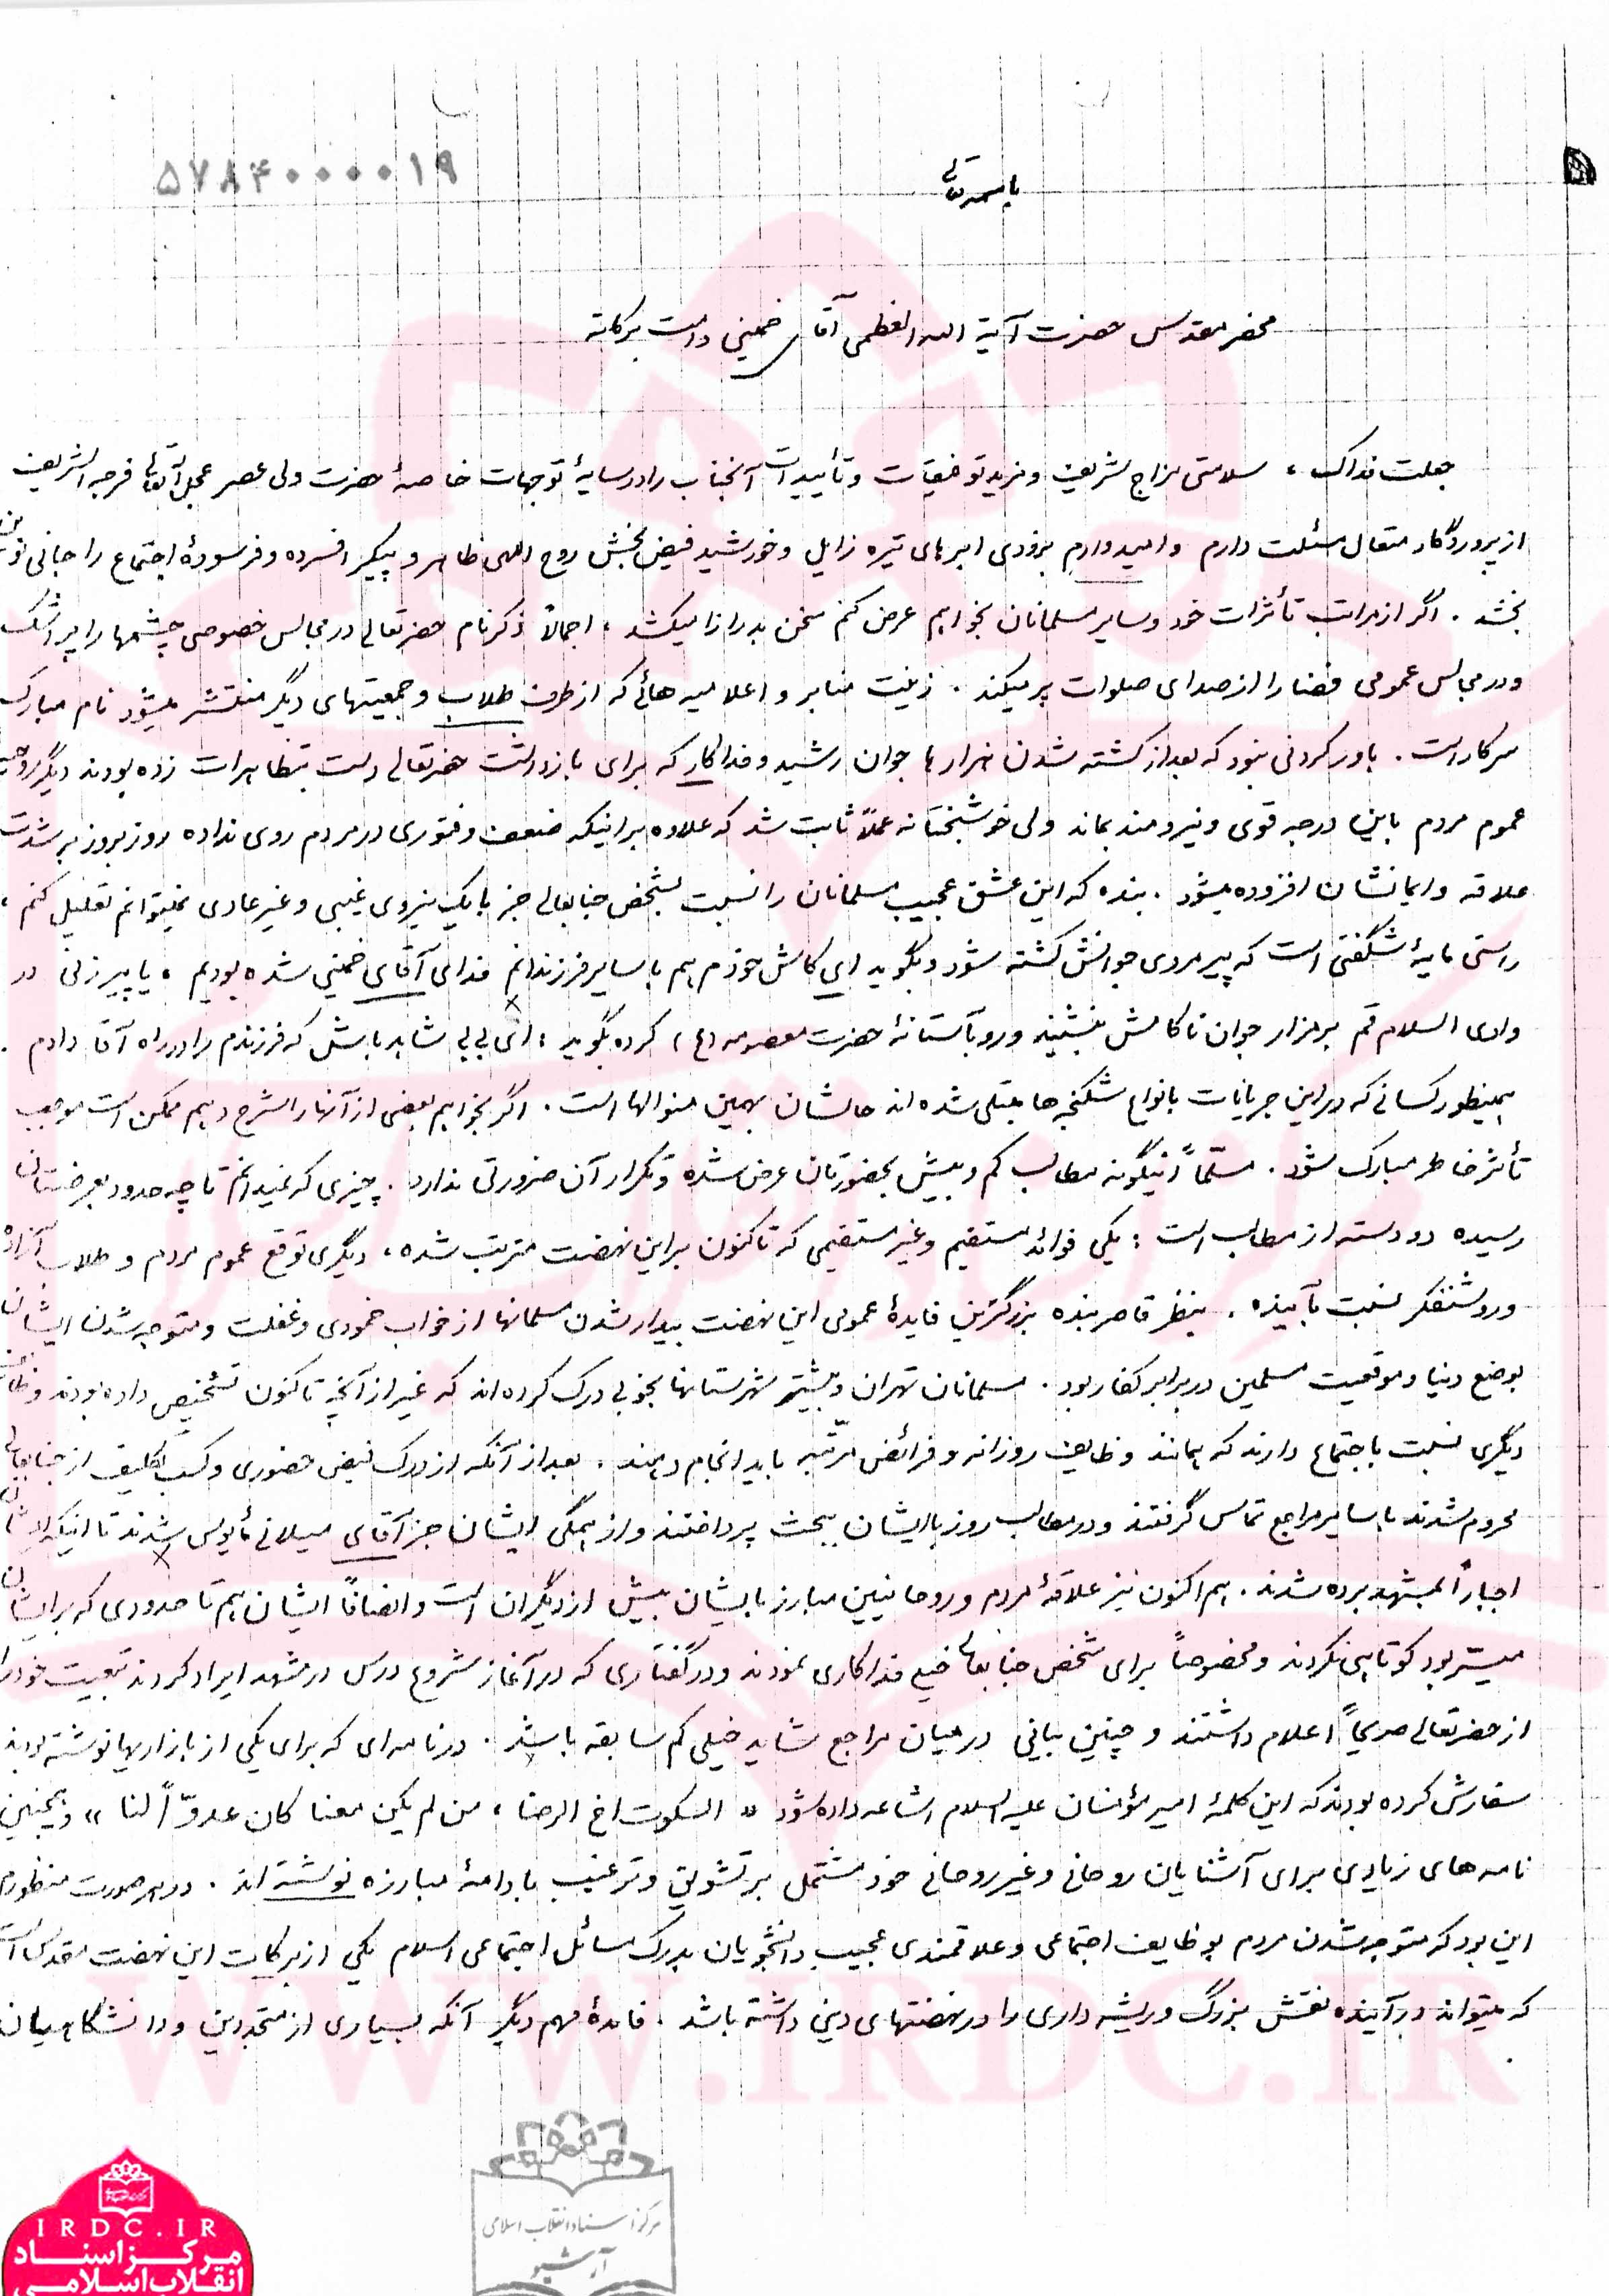 ۵۷۸۴۰۰۰۰۱۹
باسمه تعالی
محضر مقدس حضرت آیة الله العظمی آقای خمینی دامت برکاته
جعلت فداک، سلامتی مزاج شریف و مزید توفیقات و تأییدات آنجناب را در سایهٔ توجهات خاصهٔ حضرت ولی عصر عجل الله تعالی فرجه الشریف
از پروردگار متعال مسئلت دارم و امیدوارم بزودی ابرهای تیره زایل و خورشید فیض بخش روح اللهی ظاهر و پیکر افسرده و فرسودهٔ اجتماع را جانی نوین
بخشد. اگر از مراتب تأثرات خود و سایر مسلمانان بخواهم عرض کنم سخن بدرازا میکشد، اجمالاً ذکر نام حضرتعالی در مجالس خصوصی چشمها را پر اشک
و در مجالس عمومی فضا را از صدای صلوات پر میکند. زینت منابر و اعلامیه هائی که از طرف طلاب و جمعیتهای دیگر منتشر میشود نام مبارک
سرکار است. باور کردنی نبود که بعد از کشته شدن هزارها جوان رشید و فداکار که برای بازداشت حضرتعالی دست بتظاهرات زده بودند دیگر روحیهٔ
عموم مردم باین درجه قوی و نیرومند بماند ولی خوشبختانه عملاً ثابت شد که علاوه بر اینکه ضعف و فتوری در مردم روی نداده روز بروز بر شدت
علاقه و ایمانشان افزوده میشود. بنده که این عشق عجیب مسلمانان را نسبت بشخص جنابعالی جز با یک نیروی غیبی و غیر عادی نمیتوانم تعلیل کنم،
راستی مایهٔ شگفتی است که پیر مردی جوانش کشته شود و بگوید ای کاش خودم هم با سایر فرزندانم فدای آقای خمینی شده بودیم، یا پیر زنی در
وادی السلام قم بر مزار جوان ناکامش بنشیند و رو بآستانهٔ حضرت معصومه (ع) کرده بگوید: ای بی بی شاهد باش که فرزندم را در راه آقا دادم.
بهمینطور کسانی که در این جریانات بانواع شکنجه ها مبتلی شده اند حالشان بهمین منوالها است. اگر بخواهم بعضی از آنها را شرح دهم ممکن است موجب
تأثر خاطر مبارک شود. مسلّماً اینگونه مطالب کم و بیش بحضورتان عرض شده و تکرار آن ضرورتی ندارد. چیزی که نمیدانم تا چه حدود بعرضتان
رسیده دو دسته از مطالب است: یکی فوائد مستقیم و غیر مستقیمی که تاکنون بر این نهضت مترتب شده، دیگری توقع عموم مردم و طلاب آزاده
و روشنفکر نسبت بآینده. بنظر قاصر بنده بزرگترین فایدهٔ عمومی این نهضت بیدار شدن مسلمانها از خواب خمودی و غفلت و متوجه شدن ایشان
بوضع دنیا و موقعیت مسلمین در برابر کفار بود. مسلمانان تهران و بیشتر شهرستانها بخوبی درک کرده اند که غیر از آنچه تاکنون تشخیص داده بودند وظائف
دیگری نسبت باجتماع دارند که همانند وظایف روزانه و فرائض مرتبه باید انجام دهند. بعد از آنکه از درک فیض حضوری و کسب تکلیف از جنابعالی
محروم شدند با سایر مراجع تماس گرفتند و در مطالب روز با ایشان ببحث پرداختند و از همگی ایشان جز آقای میلانی مأیوس شدند تا اینکه ایشان
اجباراً بمشهد برده شدند. هم اکنون نیز علاقهٔ مردم و روحانیین مبارز بایشان بیش از دیگران است و انصافاً ایشان هم تا حدودی که برایشان
میسّر بود کوتاهی نکردند و مخصوصاً برای شخص جنابعالی خیلی فداکاری نمودند و در گفتاری که در آغاز شروع درس در مشهد ایراد کردند تبعیت خود را
از حضرتعالی صریحاً اعلام داشتند و چنین بیانی در میان مراجع شاید خیلی کم سابقه باشد. در نامه ای که برای یکی از بازاریها نوشته بودند
سفارش کرده بودند که این کلمهٔ امیر مؤمنان علیه السلام اشاعه داده شود «السکوت اخ الرضا، من لم یکن معنا کان عدوّاً لنا» و همچنین
نامه های زیادی برای آشنایان روحانی و غیر روحانی خود مشتمل بر تشویق و ترغیب بادامهٔ مبارزه نوشته اند. در هر صورت منظورم
این بود که متوجه شدن مردم بوظایف اجتماعی و علاقمندی عجیب دانشجویان بدرک مسائل اجتماعی اسلام یکی از برکات این نهضت مقدس است
که میتواند در آینده نقش بزرگ و ریشه داری را در نهضتهای دینی داشته باشد. فائدهٔ مهم دیگر آنکه بسیاری از متجددین و دانشگاهیان
WWW.IRDC.IR
مرکز اسناد انقلاب اسلامی
آرشیو
IRDC.IR
مرکز اسناد
انقلاب اسلامی